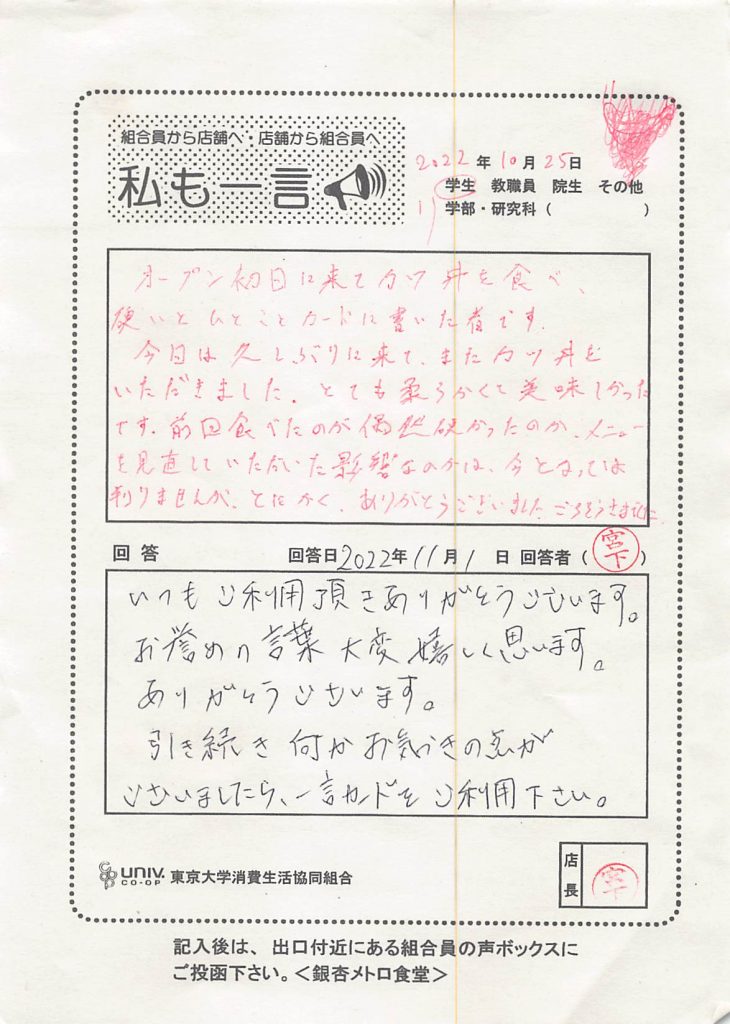 組合員から店舗へ・店舗から組合員へ
私も一言
2022年10月25日
学生 教職員 院生 その他
学部・研究科( )
オープン初日に来てカツ丼を食べ、
硬いとひとことカードに書いた者です。
今日は久しぶりに来て、またカツ丼を
いただきました。とても柔らかくて美味しかった
です。前回食べたのが偶然硬かったのか、メニュー
を見直していただいた影響なのかは、今となっては
判りませんが、とにかく、ありがとうございました ごちそうさまでした
回答 回答日2022年11月1日 回答者(宮下)
いつもご利用頂きありがとうございます。
お誉めの言葉大変嬉しく思います。
ありがとうございます。
引き続き何かお気づきの点が
ございましたら、一言カードをご利用下さい。
UNIV. CO-OP 東京大学消費生活協同組合
店長 宮下
記入後は、出口付近にある組合員の声ボックスに
ご投函下さい。<銀杏メトロ食堂>